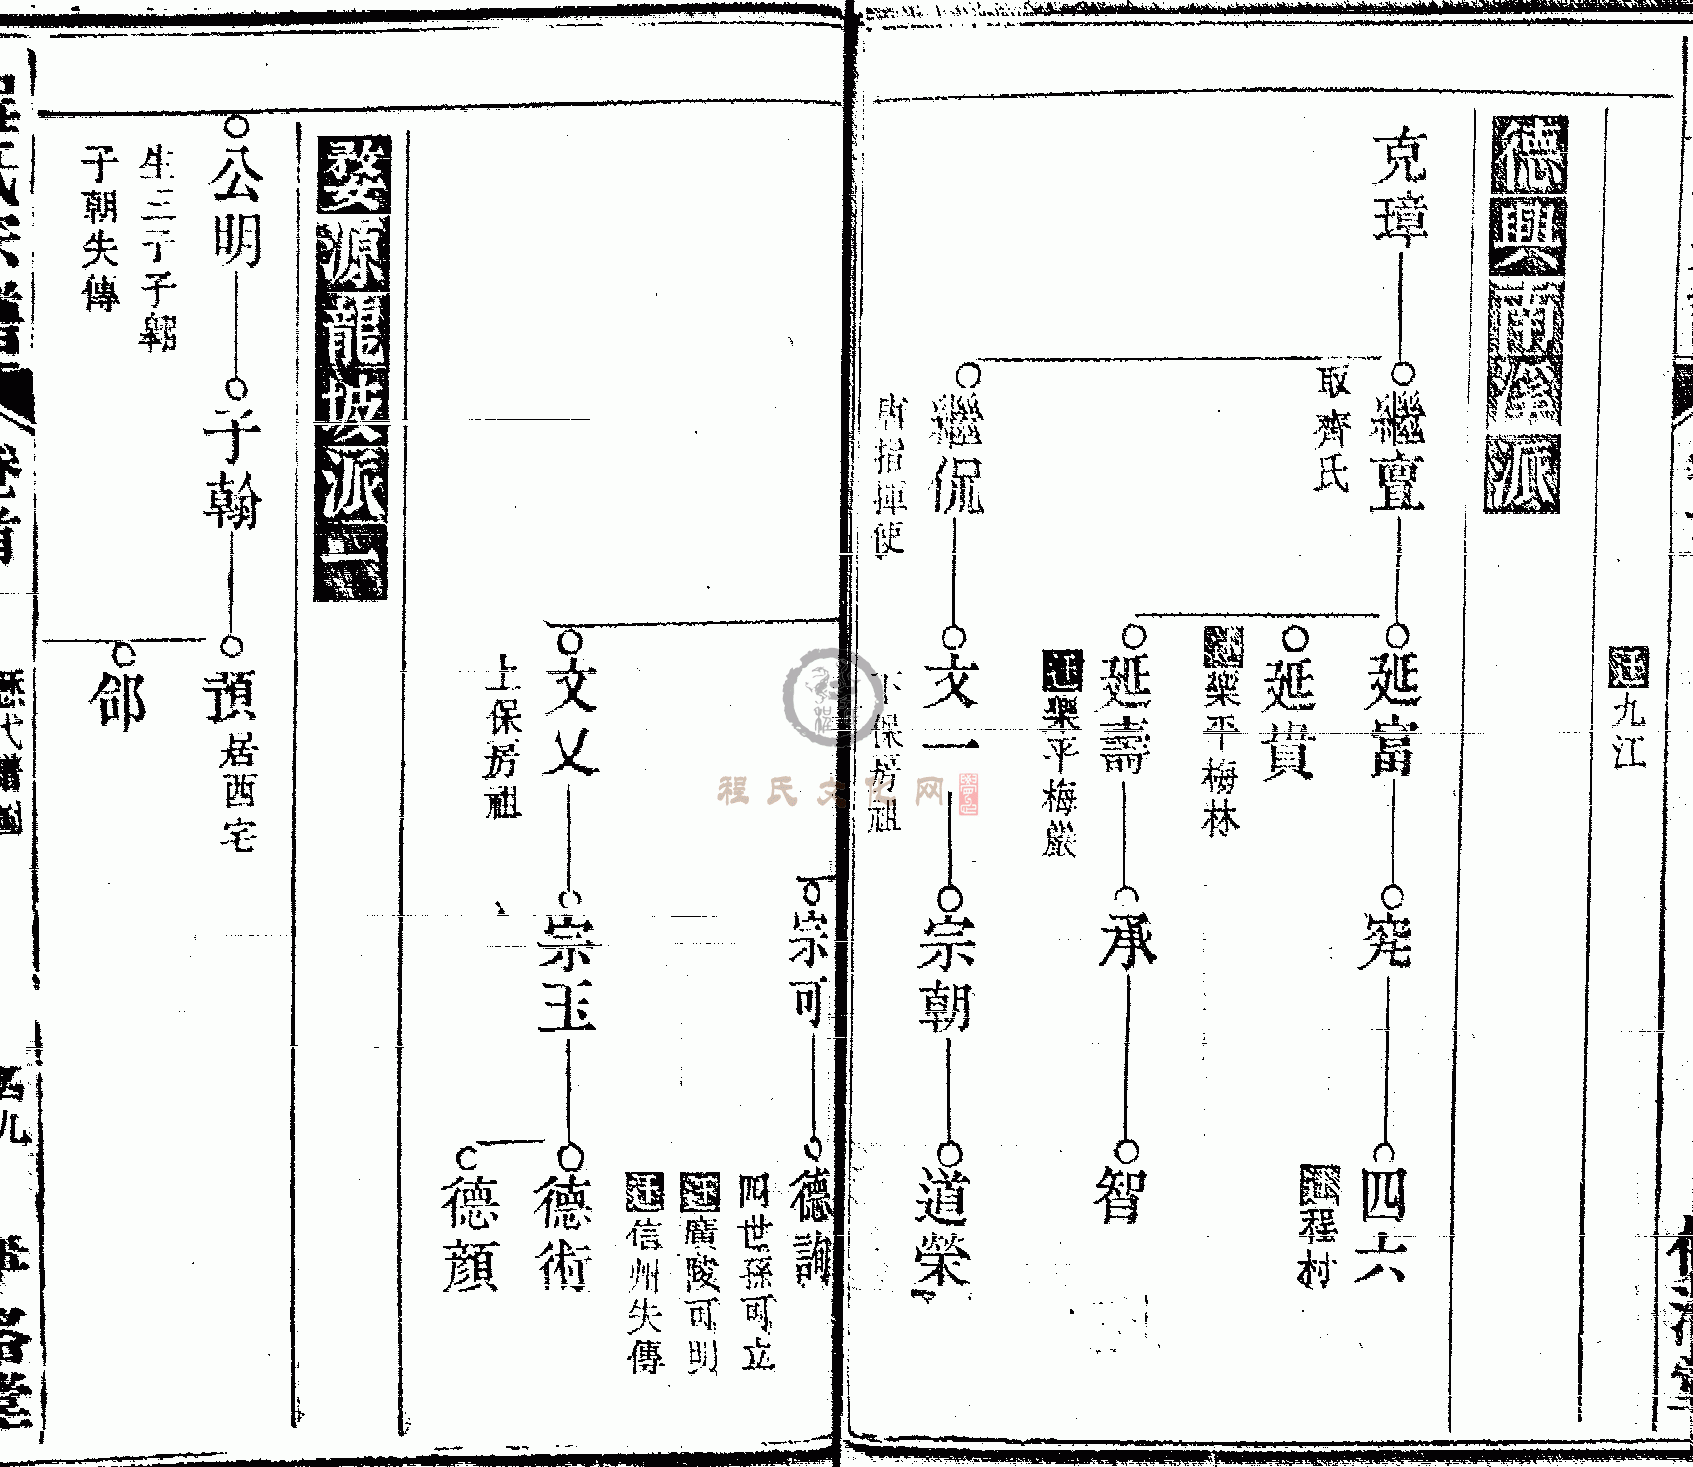 遷九江
德興南溪派
克璋
繼亶
取齊氏
延富
究
四六
遷程村
延貴
遷樂平梅林
延壽
遷樂平梅巖
承
智
繼侃
唐指揮使
文一
下保房祖
宗朝
道榮
宗可
德詢
四世孫可立
遷廣陵可明
遷信州失傳
文乂
上保房祖
宗玉
德術
德顔
婺源龍坡派一
公明
生三子子翱
子朝失傳
子翰
頊居西宅
郃
程氏宗譜
卷首
歷代譜圖
程氏文化网